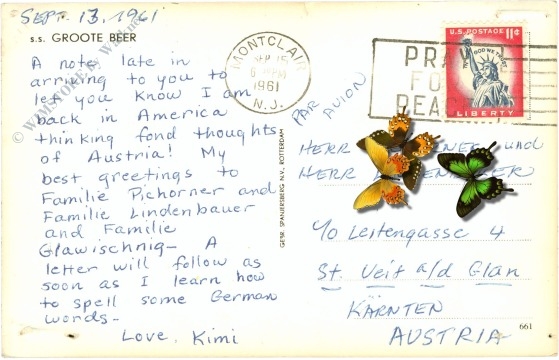 Sept. 13, 1961
S.S. GROOTE BEER
A note late in
arriving to you to
let you know I am
back in America
thinking fond thoughts
of Austria! My
best greetings to
Familie Pichorner and
Familie Lindenbauer
and Familie
Glawischnig- A
letter will follow as
soon as I learn how
to spell some German
words-
Love, Kimi
GEBR. SPANJERSBERG N.V., ROTTERDAM
MONTCLAIR
SEP 15
1961
N.J.
PRAY
FOR
PEACE
U.S. POSTAGE 11¢
IN GOD WE TRUST
LIBERTY
PAR AVION
HERR und
HERR
c/o Leitengasse 4
St. Veit a/d Glan
KÄRNTEN
AUSTRIA
661